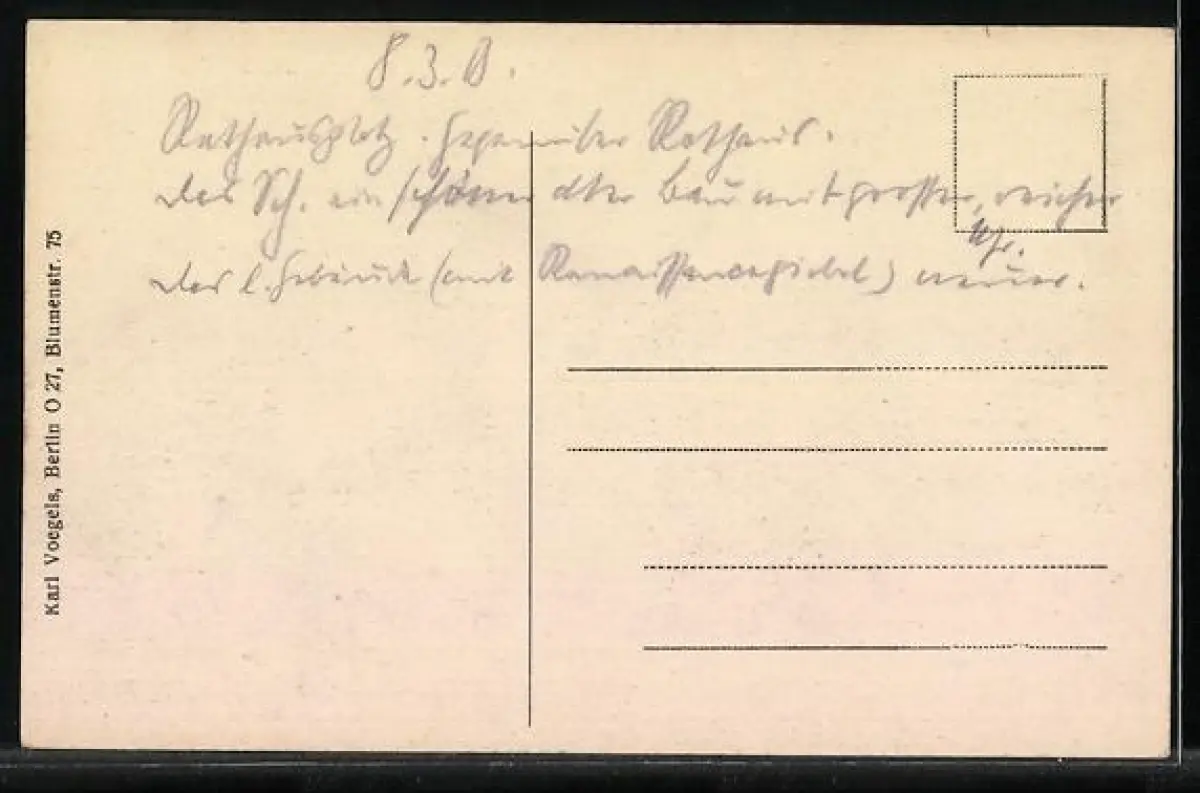 8.3.B.
Rathausplatz. Gegenüber Rathaus.
Das Sch. ein schöner alter Bau mit grosser, reicher
Uhr.
Das l. Gebäude (mit Renaissancegiebel) neuer.
Karl Voegels, Berlin O 27, Blumenstr. 75